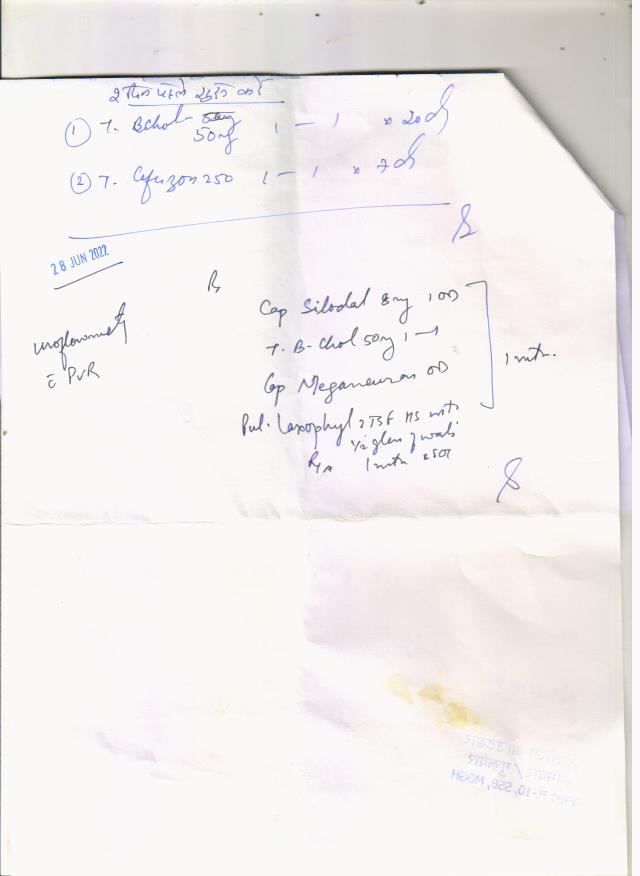 2 दिन पहले शुरू करें
① T. Bchol 50mg 1 — 1 x 20d
50mg
② T. Cefuzon 250 1 — 1 x 7d
28 JUN 2022
Rx
Cap Silodal 8mg 1 OD
uroflowmetry
T. B-Chol 50mg 1 — 1
1 mth.
c̄ PVR
Cap Meganeuron OD
Pul. Laxophyl 2 TSF HS with
1/2 glass of water
R/A 1 mth